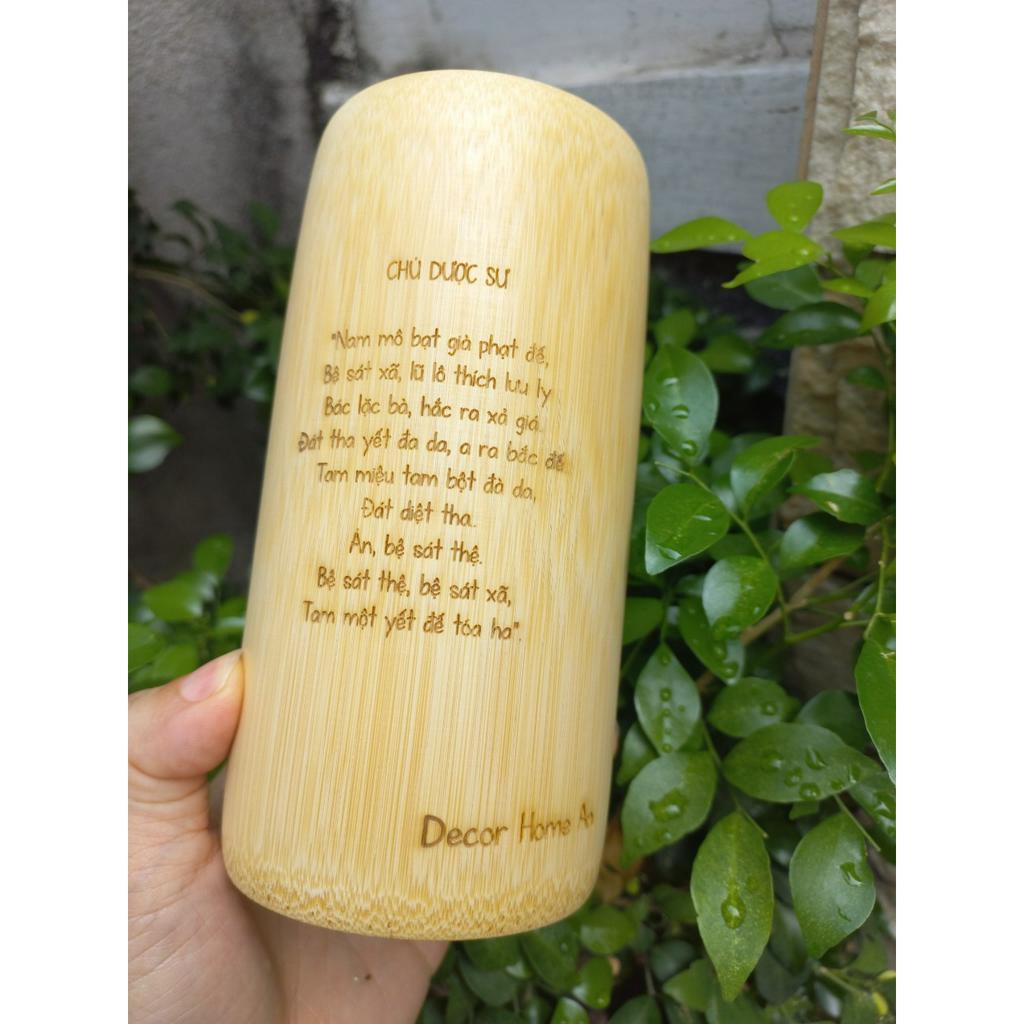 CHÚ DƯỢC SƯ
"Nam mô bạt già phạt đế,
Bệ sát xã, lũ lô thích lưu ly
Bác lặc bà, hắc ra xà giá.
Đát tha yết đa da, a ra bắc đế
Tam miệu tam bột đà da,
Đát diệt tha..
Án, bệ sát thệ.
Bệ sát thệ, bệ sát xã,
Tam một yết đế tóa ha".
Decor Home An